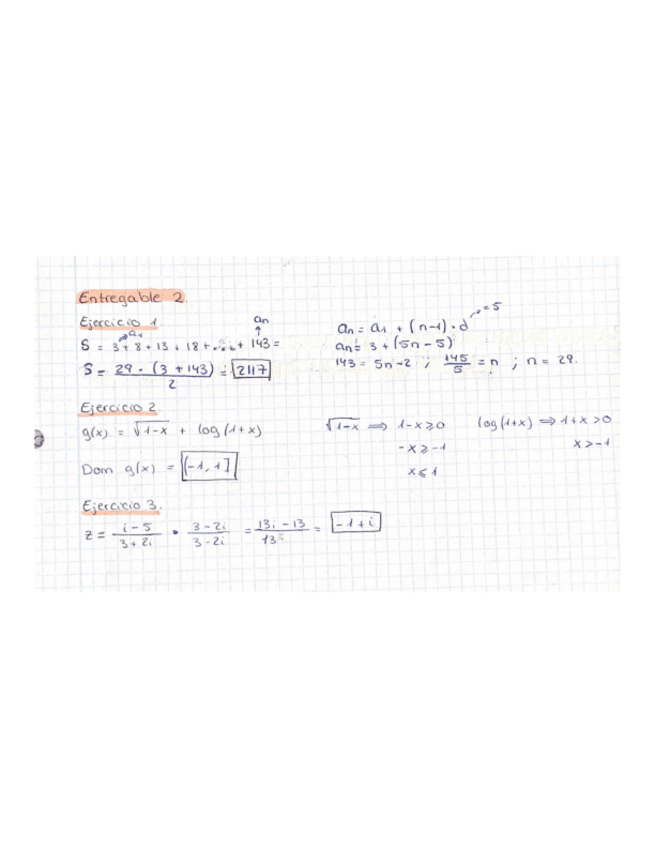 Entregable 2.
Ejercicio 1
an
S = 3 + 8 + 13 + 18 + ... + 143 =
a1
S = 29 · (3 + 143) / 2 = 2117
an = a1 + (n-1) · d = 5
an = 3 + (5n - 5)
143 = 5n - 2 ; 145/5 = n ; n = 29.
Ejercicio 2
g(x) = √1-x + log (1+x)
√1-x ⟹ 1-x ≥ 0
-x ≥ -1
x ≤ 1
log (1+x) ⟹ 1+x > 0
x > -1
Dom g(x) = (-1, 1]
Ejercicio 3.
z = i-5 / 3+2i · 3-2i / 3-2i = 13i - 13 / 13 = -1 + i